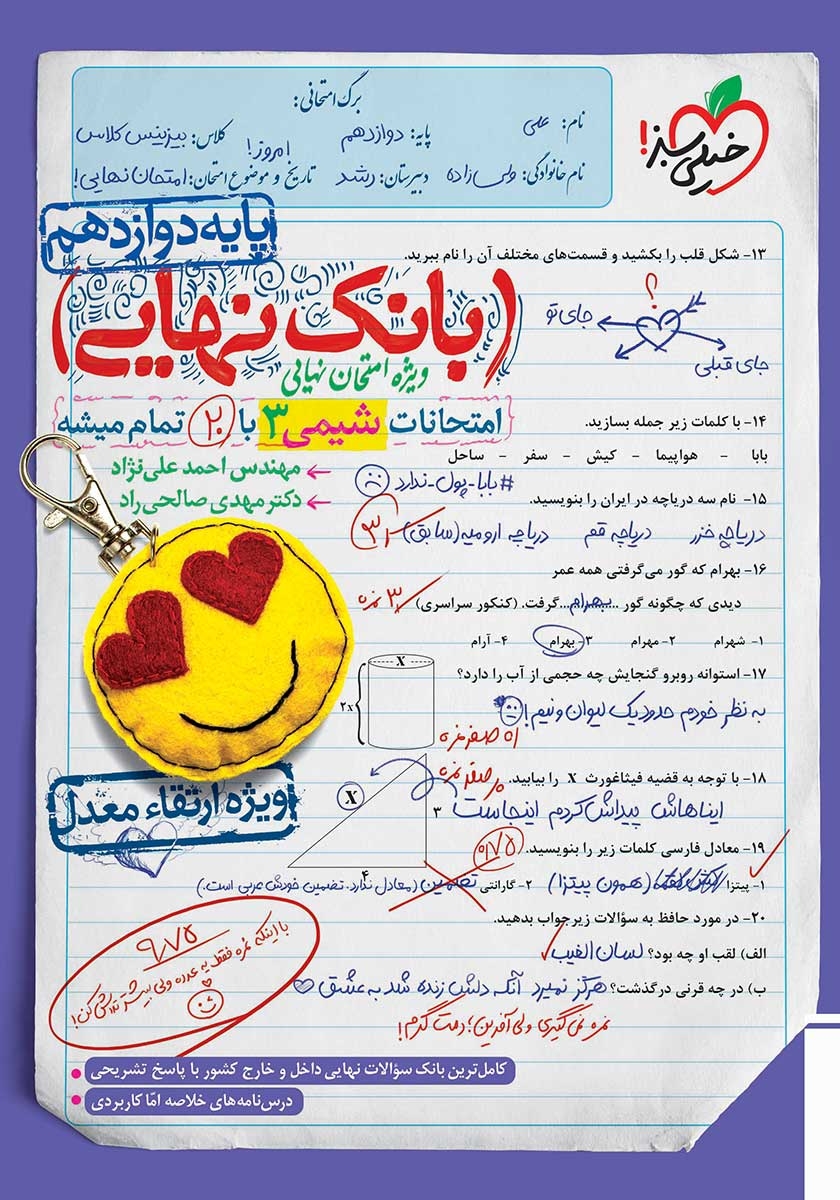 خیلی سبز!
برگ امتحانی:
نام: علی
پایه: دوازدهم
کلاس: بیزینس کلاس
نام خانوادگی: ولی زاده
دبیرستان: رشد
تاریخ و موضوع امتحان: امروز! امتحان نهایی!
پایه دوازدهم
(بانک نهایی)
ویژه امتحان نهایی
امتحانات شیمی ۳ با ۲۰ تمام میشه
مهندس احمد علی‌نژاد
دکتر مهدی صالحی‌راد
۱۳- شکل قلب را بکشید و قسمت‌های مختلف آن را نام ببرید.
؟
جای تو
جای قبلی
۱۴- با کلمات زیر جمله بسازید.
بابا - هواپیما - کیش - سفر - ساحل
#بابا-پول-ندارد
۱۵- نام سه دریاچه در ایران را بنویسید.
دریاچه خزر دریاچه قم دریاچه ارومیه (سابق)
۱۶- بهرام که گور می‌گرفتی همه عمر
دیدی که چگونه گور ...بهرام... گرفت. (کنکور سراسری)
۳ نمره
۱- شهرام ۲- مهرام ۳- بهرام ۴- آرام
۱۷- استوانه روبرو گنجایش چه حجمی از آب را دارد؟
X
۲x
به نظر خودم حدود یک لیوان و نیم!
اه صفر مزه
۱۸- با توجه به قضیه فیثاغورث X را بیابید.
صفر نمره
ایناهاش پیداش کردم اینجاست
X
۳
۴
۱۹- معادل فارسی کلمات زیر را بنویسید.
۰/۷۵
۱- پیتزا (همون پیتزا) ۲- گارانتی تضمین (معادل ندارد. تضمین خودش عربی است.)
۲۰- در مورد حافظ به سؤالات زیر جواب بدهید.
الف) لقب او چه بود؟ لسان الغیب
ب) در چه قرنی درگذشت؟ هرگز نمیرد آنکه دلش زنده شد به عشق
نمره نمی‌گیری ولی آفرین؛ دمت گرم!
ویژه ارتقاء معدل
۹/۷۵
با اینکه نمره فقط یه عدده ولی بیشتر تلاش کن!
کامل‌ترین بانک سؤالات نهایی داخل و خارج کشور با پاسخ تشریحی
درس‌نامه‌های خلاصه امّا کاربردی